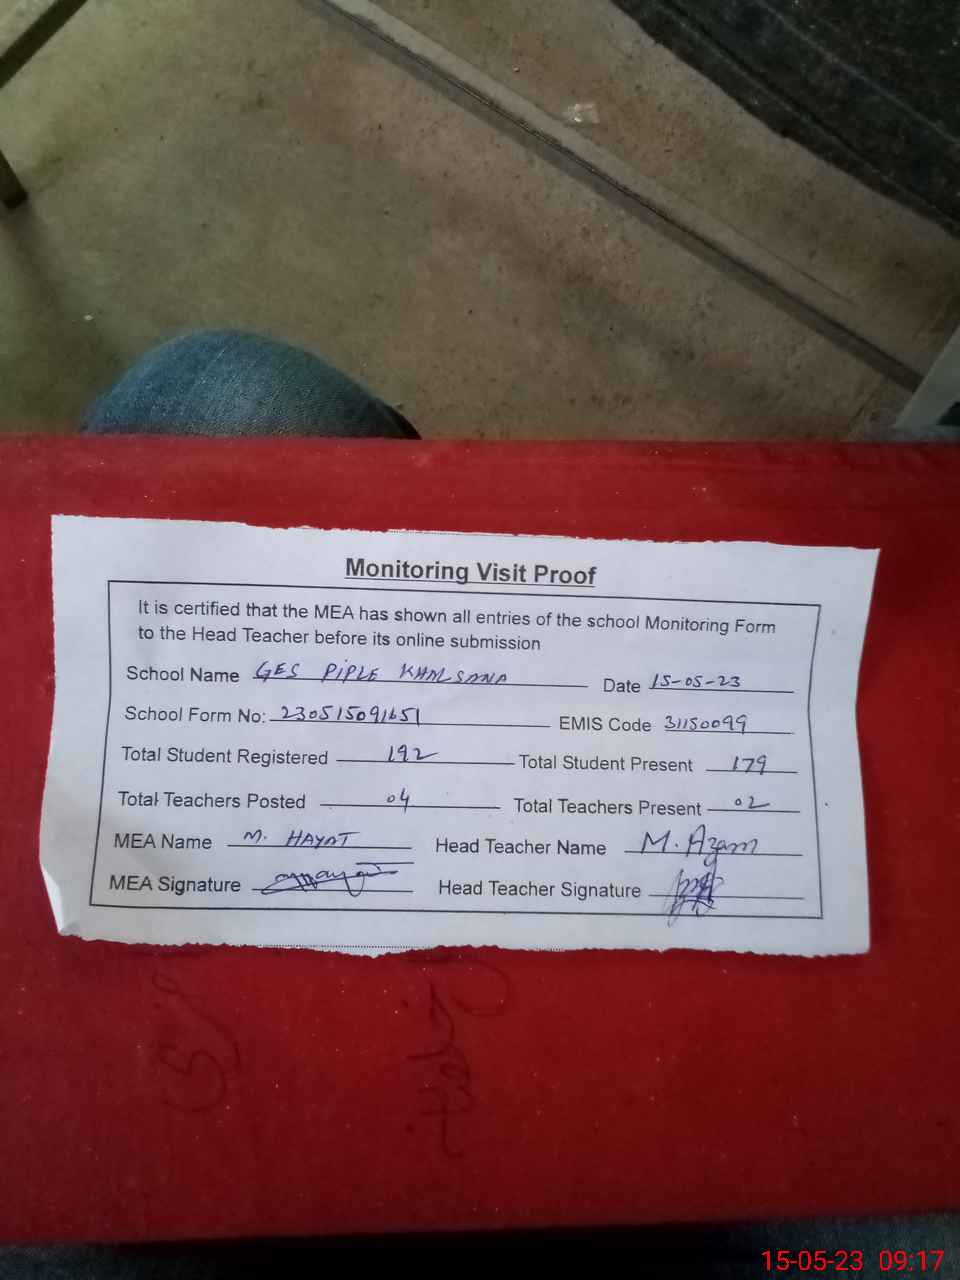 Monitoring Visit Proof
It is certified that the MEA has shown all entries of the school Monitoring Form
to the Head Teacher before its online submission
School Name GES PIPLE KHALSANA Date 15-05-23
School Form No: 230515091651 EMIS Code 31150099
Total Student Registered 192 Total Student Present 179
Total Teachers Posted 04 Total Teachers Present 02
MEA Name M. HAYAT Head Teacher Name M. Azam
MEA Signature Head Teacher Signature
15-05-23 09:17